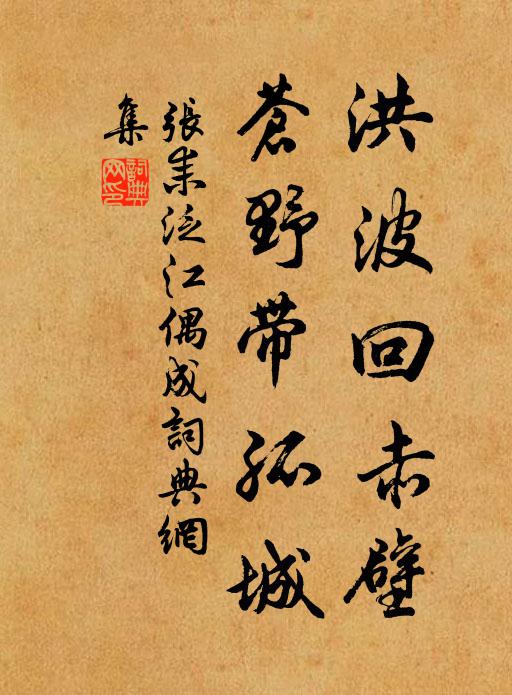 洪波回赤壁
蒼野帶孤城
張耒泛江偶成詞典網
集
詞典
网印